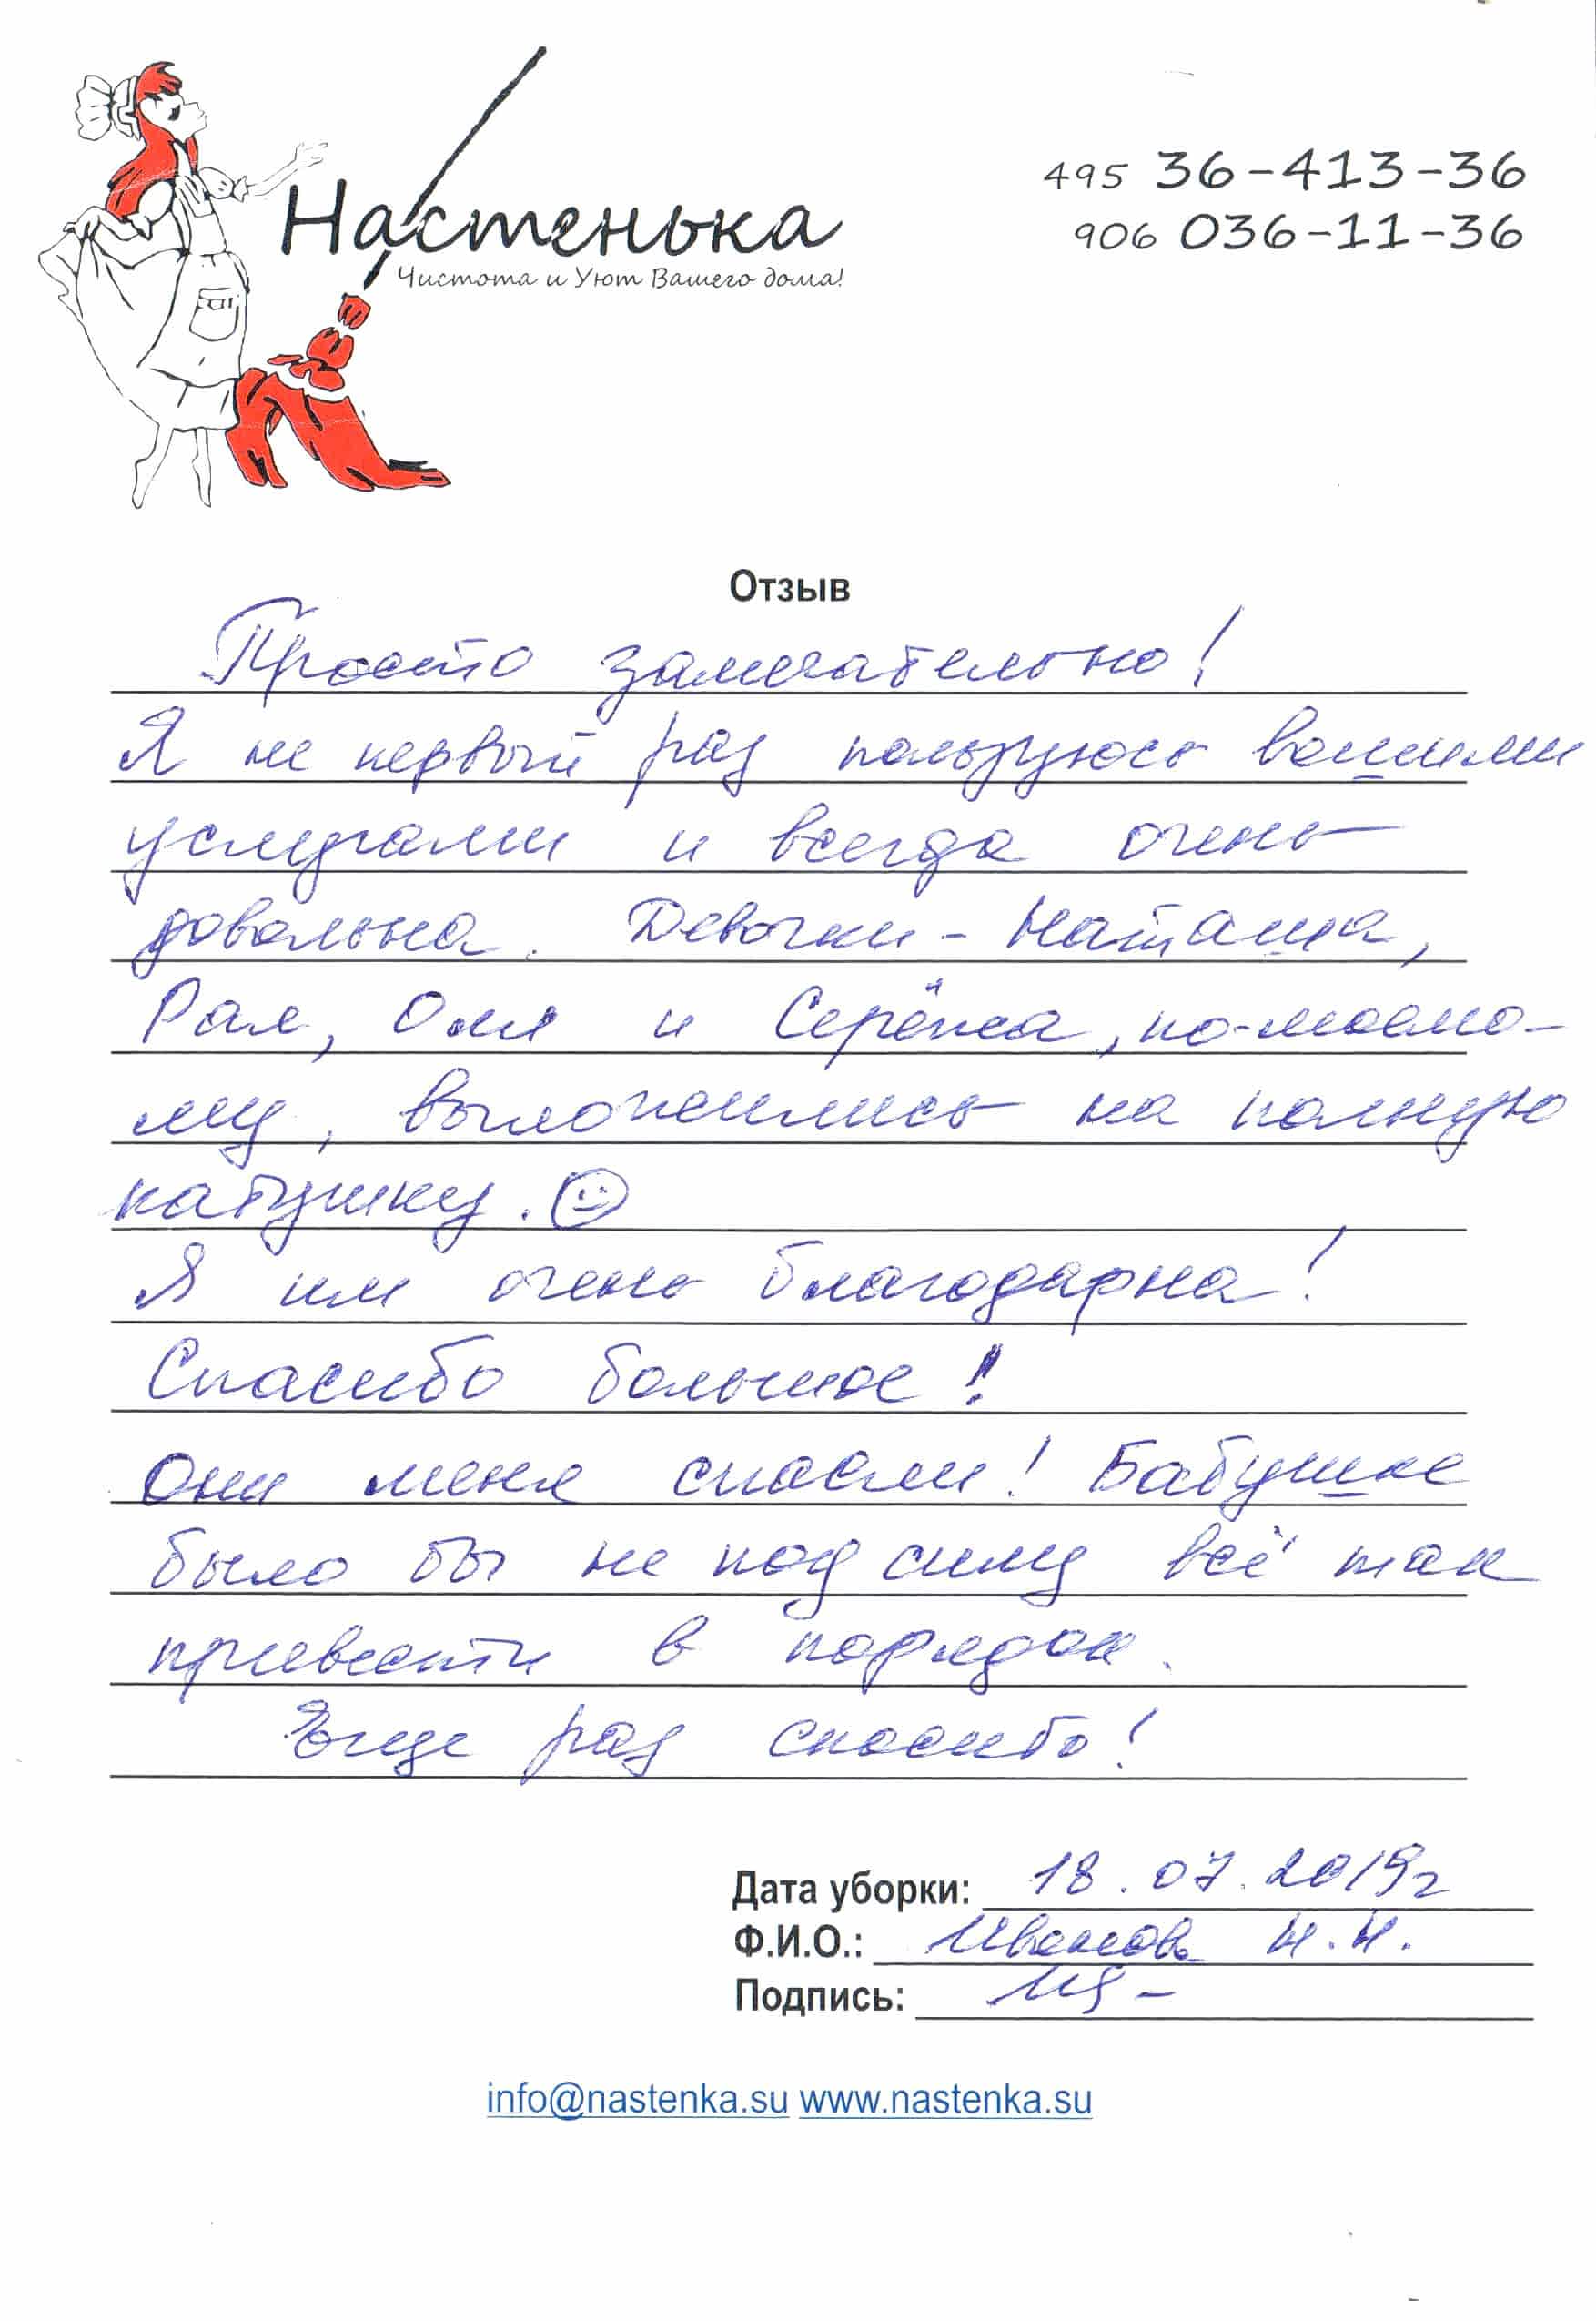 Настенька
Чистота и Уют Вашего дома!
495 36-413-36
906 036-11-36
Отзыв
Просто замечательно!
Я не первый раз пользуюсь вашими
услугами и всегда очень
довольна. Девочки - Наташа,
Рая, Оля и Серёжа, по-моемо-
му, выложились на полную
катушку. ☺
Я им очень благодарна!
Спасибо большое!
Они меня спасли! Бабушке
было бы не под силу всё так
привести в порядок.
Еще раз спасибо!
Дата уборки: 18.07.2019г
Ф.И.О.: Иванова Н.Н.
Подпись:
info@nastenka.su www.nastenka.su